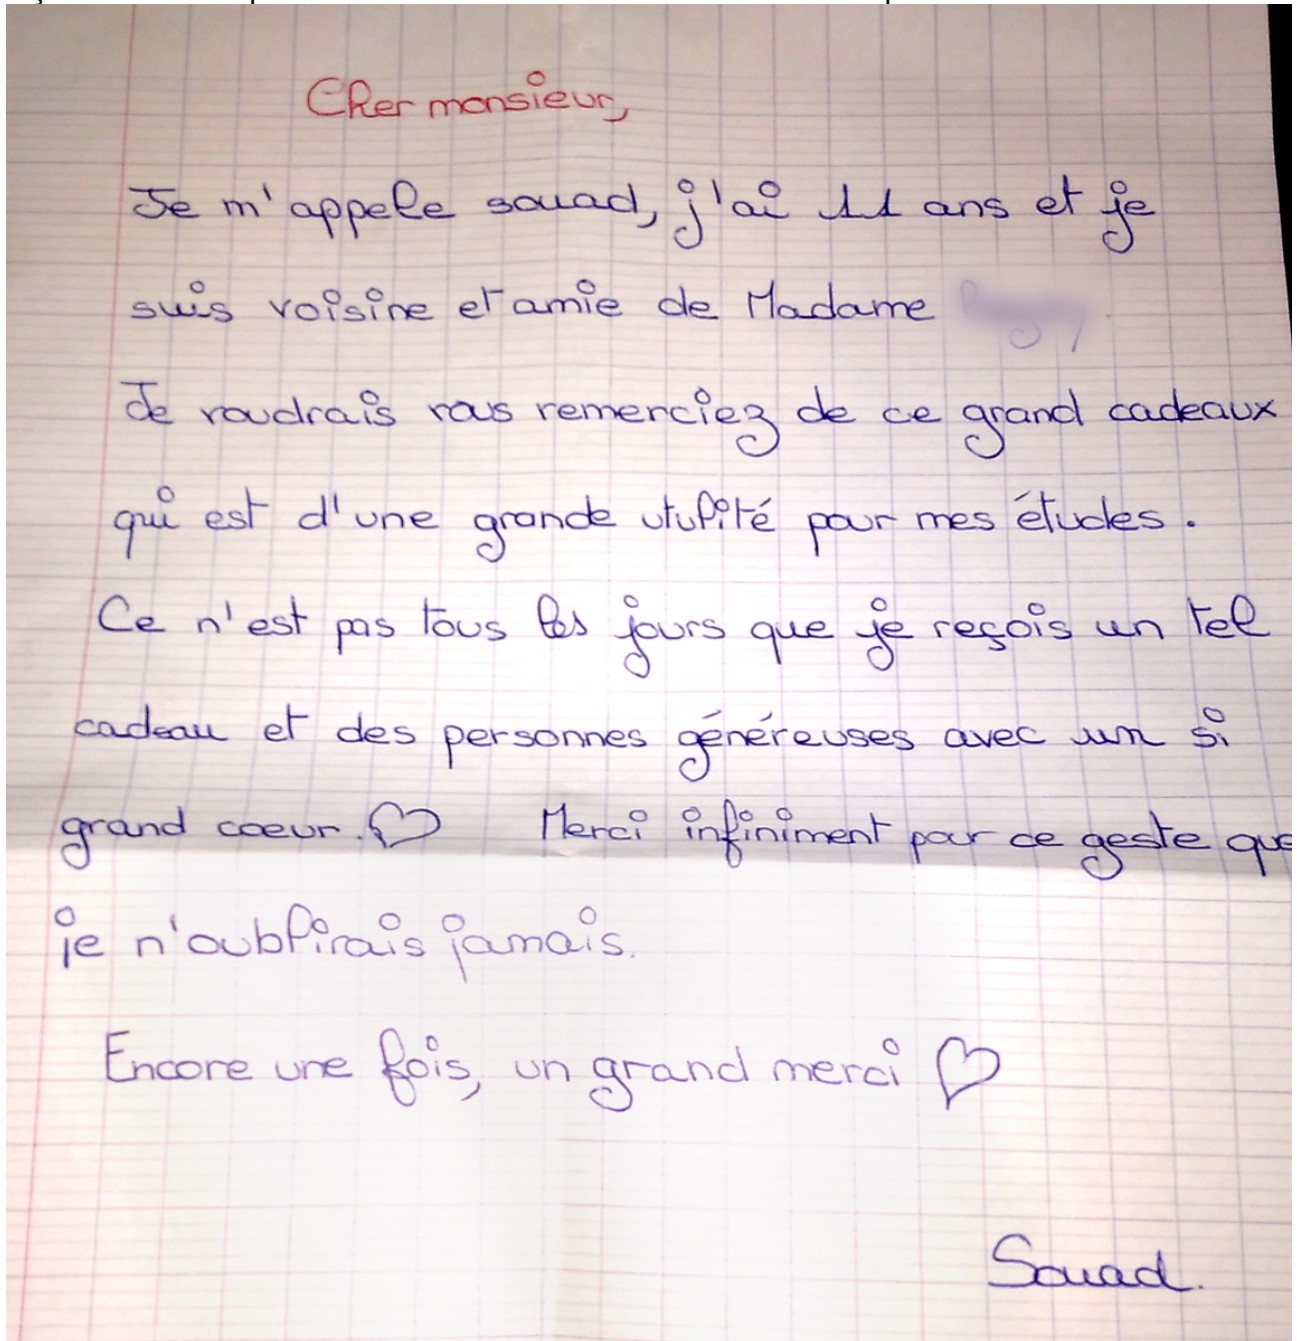 Cher monsieur,
Je m'appele souad, j'ai 11 ans et je
suis voisine et amie de Madame
Je voudrais vous remerciez de ce grand cadeaux
qui est d'une grande utulité pour mes études.
Ce n'est pas tous les jours que je reçois un tel
cadeau et des personnes généreuses avec un si
grand coeur. ♡ Merci infiniment pour ce geste que
je n'oublirais jamais.
Encore une fois, un grand merci ♡
Souad.